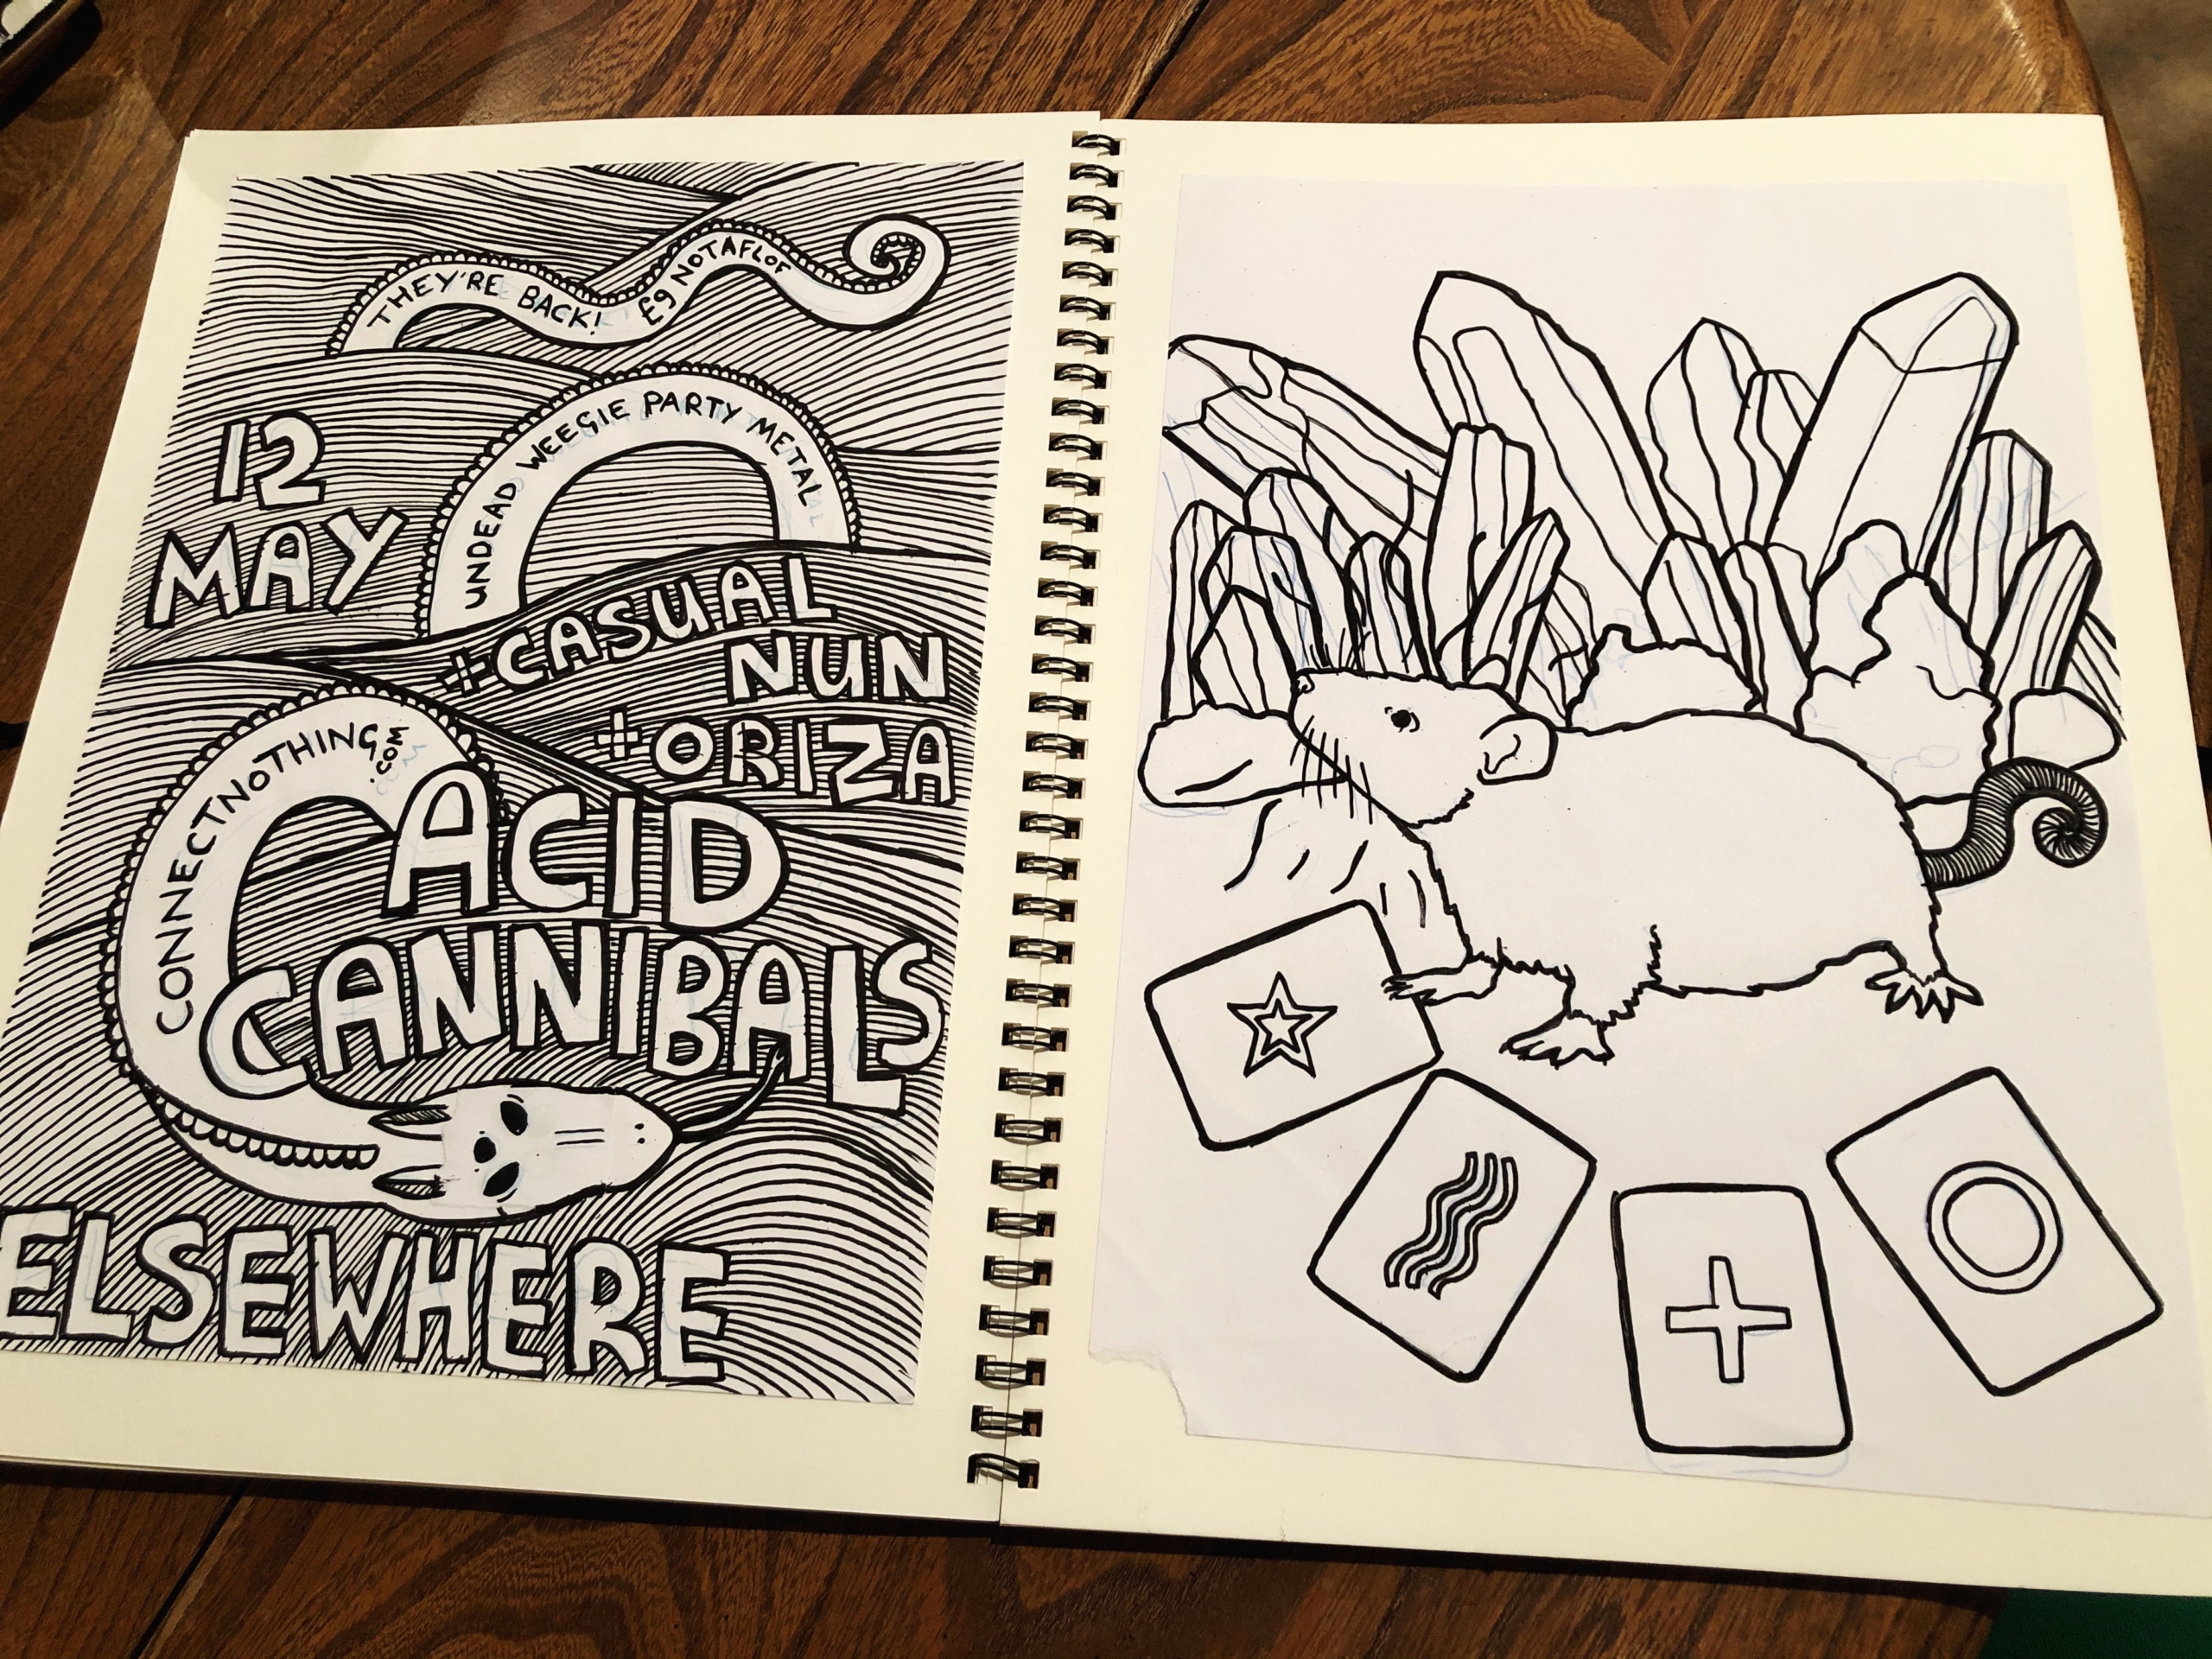 THEY'RE BACK! £9 NOTAFLOF
UNDEAD WEEGIE PARTY METAL
12
MAY
+CASUAL
NUN
+ORIZA
CONNECTNOTHING.COM
ACID
CANNIBALS
ELSEWHERE